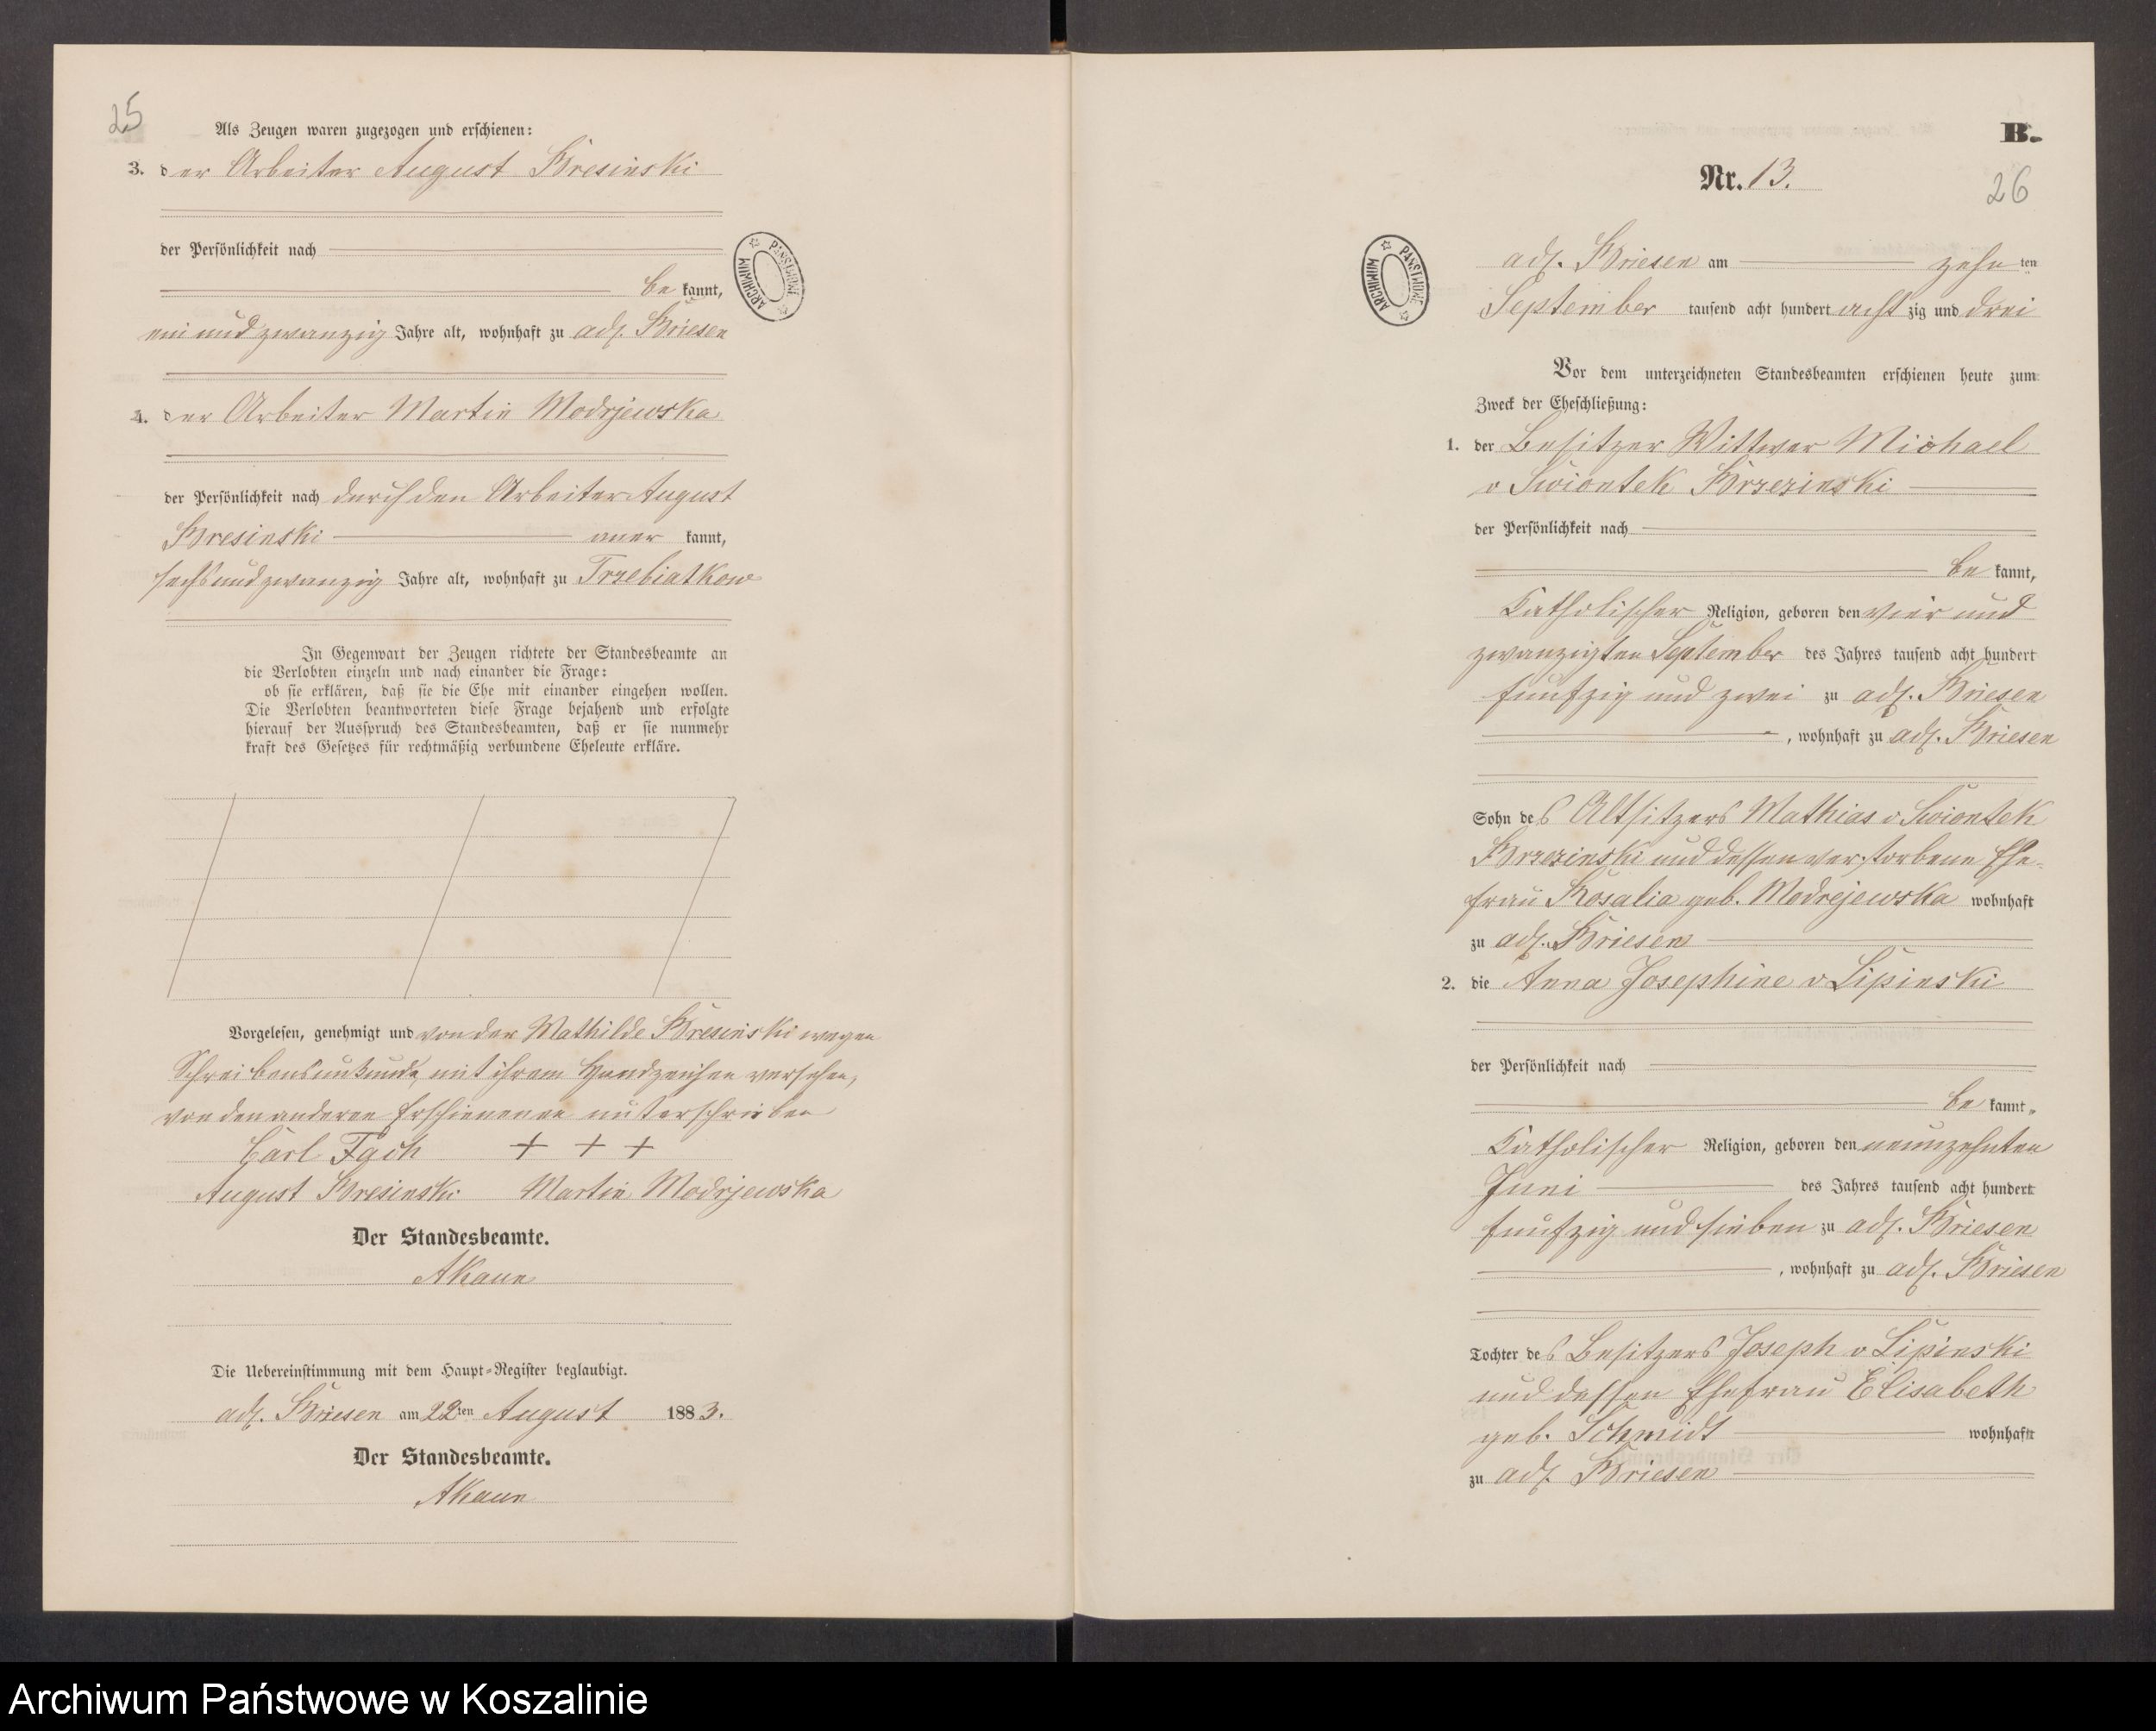 25
Als Zeugen waren zugezogen und erschienen:
3. der Arbeiter August Bresinski
der Persönlichkeit nach
be kannt,
ein und zwanzig Jahre alt, wohnhaft zu adl. Briesen
4. der Arbeiter Martin Modrjewska
der Persönlichkeit nach durch den Arbeiter August
Bresinski aner kannt,
sechs und zwanzig Jahre alt, wohnhaft zu Trzebiatkow
In Gegenwart der Zeugen richtete der Standesbeamte an
die Verlobten einzeln und nach einander die Frage:
ob sie erklären, daß sie die Ehe mit einander eingehen wollen.
Die Verlobten beantworteten diese Frage bejahend und erfolgte
hierauf der Ausspruch des Standesbeamten, daß er sie nunmehr
kraft des Gesetzes für rechtmäßig verbundene Eheleute erkläre.
Vorgelesen, genehmigt und von der Mathilde Bresinski wegen
Schreibensunkunde, mit ihrem Handzeichen versehen,
von den anderen Erschienenen unterschrieben
Carl Fach + + +
August Bresinski Martin Modrjewska
Der Standesbeamte.
AKaun
Die Uebereinstimmung mit dem Haupt-Register beglaubigt.
adl. Briesen am 22ten August 1883.
Der Standesbeamte.
AKaun
ARCHIWUM PAŃSTWOWE
B.
Nr. 13.
26
ARCHIWUM PAŃSTWOWE
adl. Briesen am zehn ten
September tausend acht hundert acht zig und drei
Vor dem unterzeichneten Standesbeamten erschienen heute zum
Zweck der Eheschließung:
1. der Besitzer Wittwer Michael
v Swiontek Brzezinski
der Persönlichkeit nach
be kannt,
Katholischer Religion, geboren den vier und
zwanzigten September des Jahres tausend acht hundert
funfzig und zwei zu adl. Briesen
, wohnhaft zu adl. Briesen
Sohn des Altsitzers Mathias v Swiontek
Brzezinski und dessen verstorbene Ehe-
frau Rosalia geb. Modrejewska wohnhaft
zu adl. Briesen
2. die Anna Josephine v Lipinski
der Persönlichkeit nach
be kannt,
Katholischer Religion, geboren den neunzehnten
Juni des Jahres tausend acht hundert
funfzig und sieben zu adl. Briesen
, wohnhaft zu adl. Briesen
Tochter des Besitzers Joseph v Lipinski
und dessen Ehefrau Elisabeth
geb. Schmidt wohnhaft
zu adl. Briesen
Archiwum Państwowe w Koszalinie